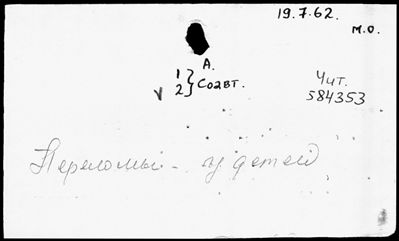 19.7.62.
М.О.
А.
1
2 } Соавт.
v
Чит.
584353
Переломы - у детей